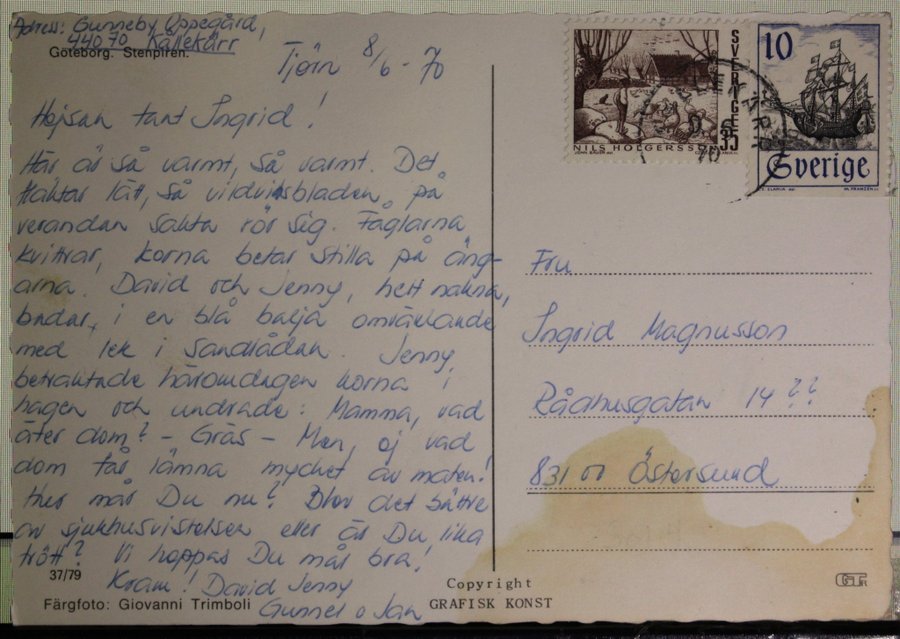 Adress: Gunneby Uppegård,
440 70 Kållekärr
Göteborg. Stenpiren.
Tjörn 8/6 - 70
Hejsan tant Ingrid!
Här är så varmt, så varmt. Det
fläktar lätt, så vildvinsbladen på
verandan sakta rör sig. Fåglarna
kvittrar, korna betar stilla på äng-
arna. David och Jenny, helt nakna,
badar, i en blå balja omväxlande
med lek i sandlådan. Jenny
betraktade häromdagen korna i
hagen och undrade: Mamma, vad
äter dom? - Gräs - Men, oj vad
dom får lämna mycket av maten!
Hur mår Du nu? Blev det bättre
av sjukhusvistelsen eller är Du lika
trött? Vi hoppas Du mår bra!
Kram! David Jenny
Gunnel o Jan
37/79
Färgfoto: Giovanni Trimboli
Copyright
GRAFISK KONST
SVERIGE 35
NILS HOLGERSSON
10
Sverige
Fru
Ingrid Magnusson
Rådhusgatan 14??
831 00 Östersund